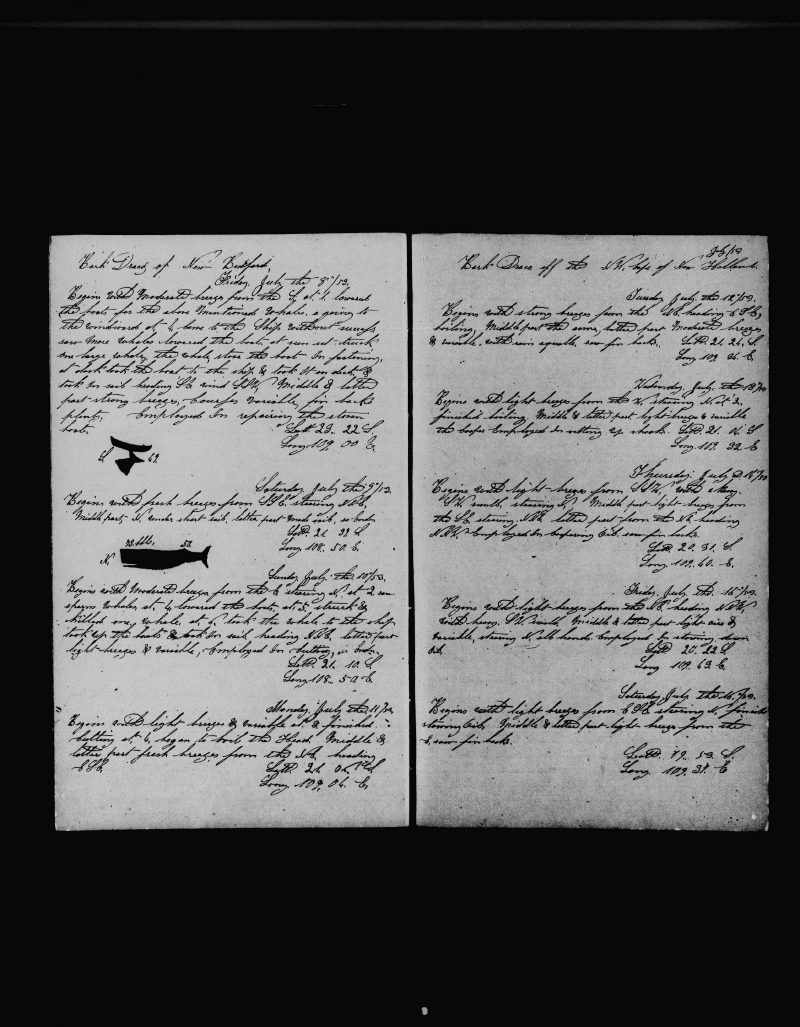 Bark Draco of New Bedford
Friday July the 8th/53.
Begins with Moderate breeze from the at 4 lowered
the boats for the above Mentioned Whales, a going to
the windward at 6 came to the Ship without success
saw more Whales lowered the boats at sun set struck
one large whale, the whale stove the boat In fastening,
at dark took the boat to the ship & took it on deck &
took In sail heading wind Middle & latter
part strong breezes, Courses variable, for
plenty. Employed In repairing the stoven
boat. Latt 23. 22 S.
Long 109. 00 E
S 49
Saturday July the 9/53.
Begins with fresh breezes from SSE steering NBE,
Middle part, N. under short sail, latter part made sail, so ends
Latt. 21. 22 S.
Long 108. 50. E
73. bbls. 50.
N.
Sunday July the 10/53.
Begins with Moderate breeze from the E steering N. at 2 saw
sperm Whales, at 4 lowered the boats, at 5, struck &
killed one, whale, at 6, took the whale to the ship
took up the boats & took In sail heading NBE, latter part
light breezes & variable, Employed In cutting, so ends
Latt. 21. 10. S.
Long 108. 50 E
Monday July the 11/53.
Begins with light breezes & variable at finished
cutting at 6, began to boil the Head Middle &
latter part fresh breezes from the heading
ESE. Latt. 21. 04. S.
Long 109, 04. E,
July/53
Bark Draco off the N.W. Cape of New Holland.
Tuesday July the 12/53.
Begins with strong breezes from the heading ESE,
boiling, Middle part the same, latter part Moderate breezes
& variable, with rain squalls, saw fin backs. Latt. 21. 24. S.
Long 109 24. E
Wednesday July the 13/53
Begins with light breezes from the steering N. at 2,
finished boiling. Middle & latter part light breeze & variable
the cooper Employed In setting up shooks. Latt. 21. 16. S
Long 109. 32 E
Thursday July the 14/53
Begins with light breezes from with
swell, steering Middle part light breeze from
the steering NBE, latter part from the heading
Employed In coopering Oil. saw fin backs.
Latt 20. 31. S
Long 109. 40. E
Friday July the 15/53.
Begins with light breezes from the heading
with heavy swell Middle & latter part light airs &
variable, steering N, all hands Employed In stowing down
Oil Latt 20. 22 S.
Long 109. 43 E
Saturday July the 16/53.
Begins with light breeze from ESE steering finished
stowing Oil, Middle & latter part light breeze from the
E, saw fin backs.
Latt. 19. 53. S.
Long 109. 31. E